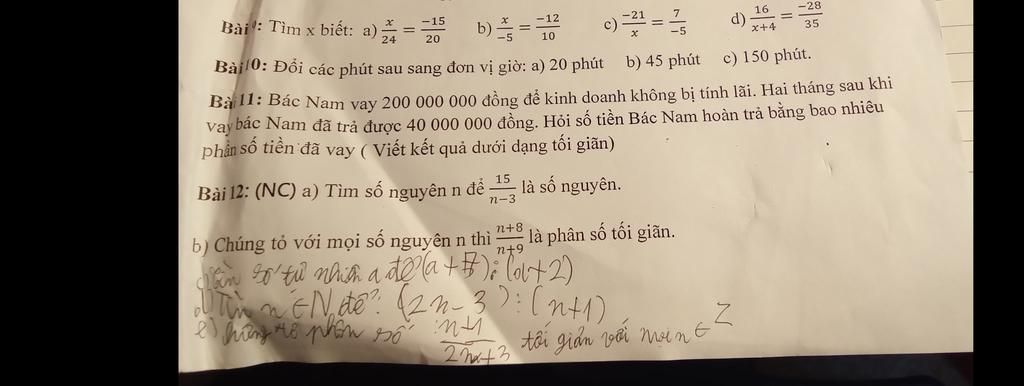 Bài 9: Tìm x biết: a) x/24 = -15/20 b) x/-5 = -12/10 c) -21/x = 7/-5 d) 16/x+4 = -28/35
Bài 10: Đổi các phút sau sang đơn vị giờ: a) 20 phút b) 45 phút c) 150 phút.
Bài 11: Bác Nam vay 200 000 000 đồng để kinh doanh không bị tính lãi. Hai tháng sau khi
vay bác Nam đã trả được 40 000 000 đồng. Hỏi số tiền Bác Nam hoàn trả bằng bao nhiêu
phần số tiền đã vay ( Viết kết quả dưới dạng tối giãn)
Bài 12: (NC) a) Tìm số nguyên n để 15/n-3 là số nguyên.
b) Chúng tỏ với mọi số nguyên n thì n+8/n+9 là phân số tối giãn.
số tự nhiên a để (a+7) : (a+2)
d) Tìm n ∈ N để : (2n-3) : (n+1)
e) chứng tỏ phân số n+1/2n+3 tối giản với mọi n ∈ Z